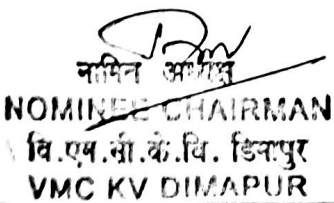 नामित अध्यक्ष
NOMINEE CHAIRMAN
वि.एम.सी.के.वि. डिमापुर
VMC KV DIMAPUR